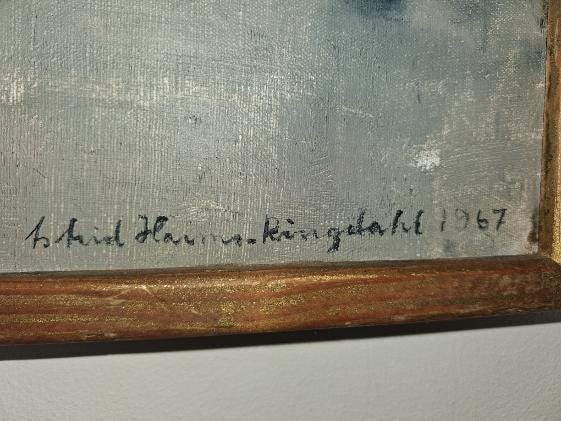 Astrid Harms-Ringdahl 1967